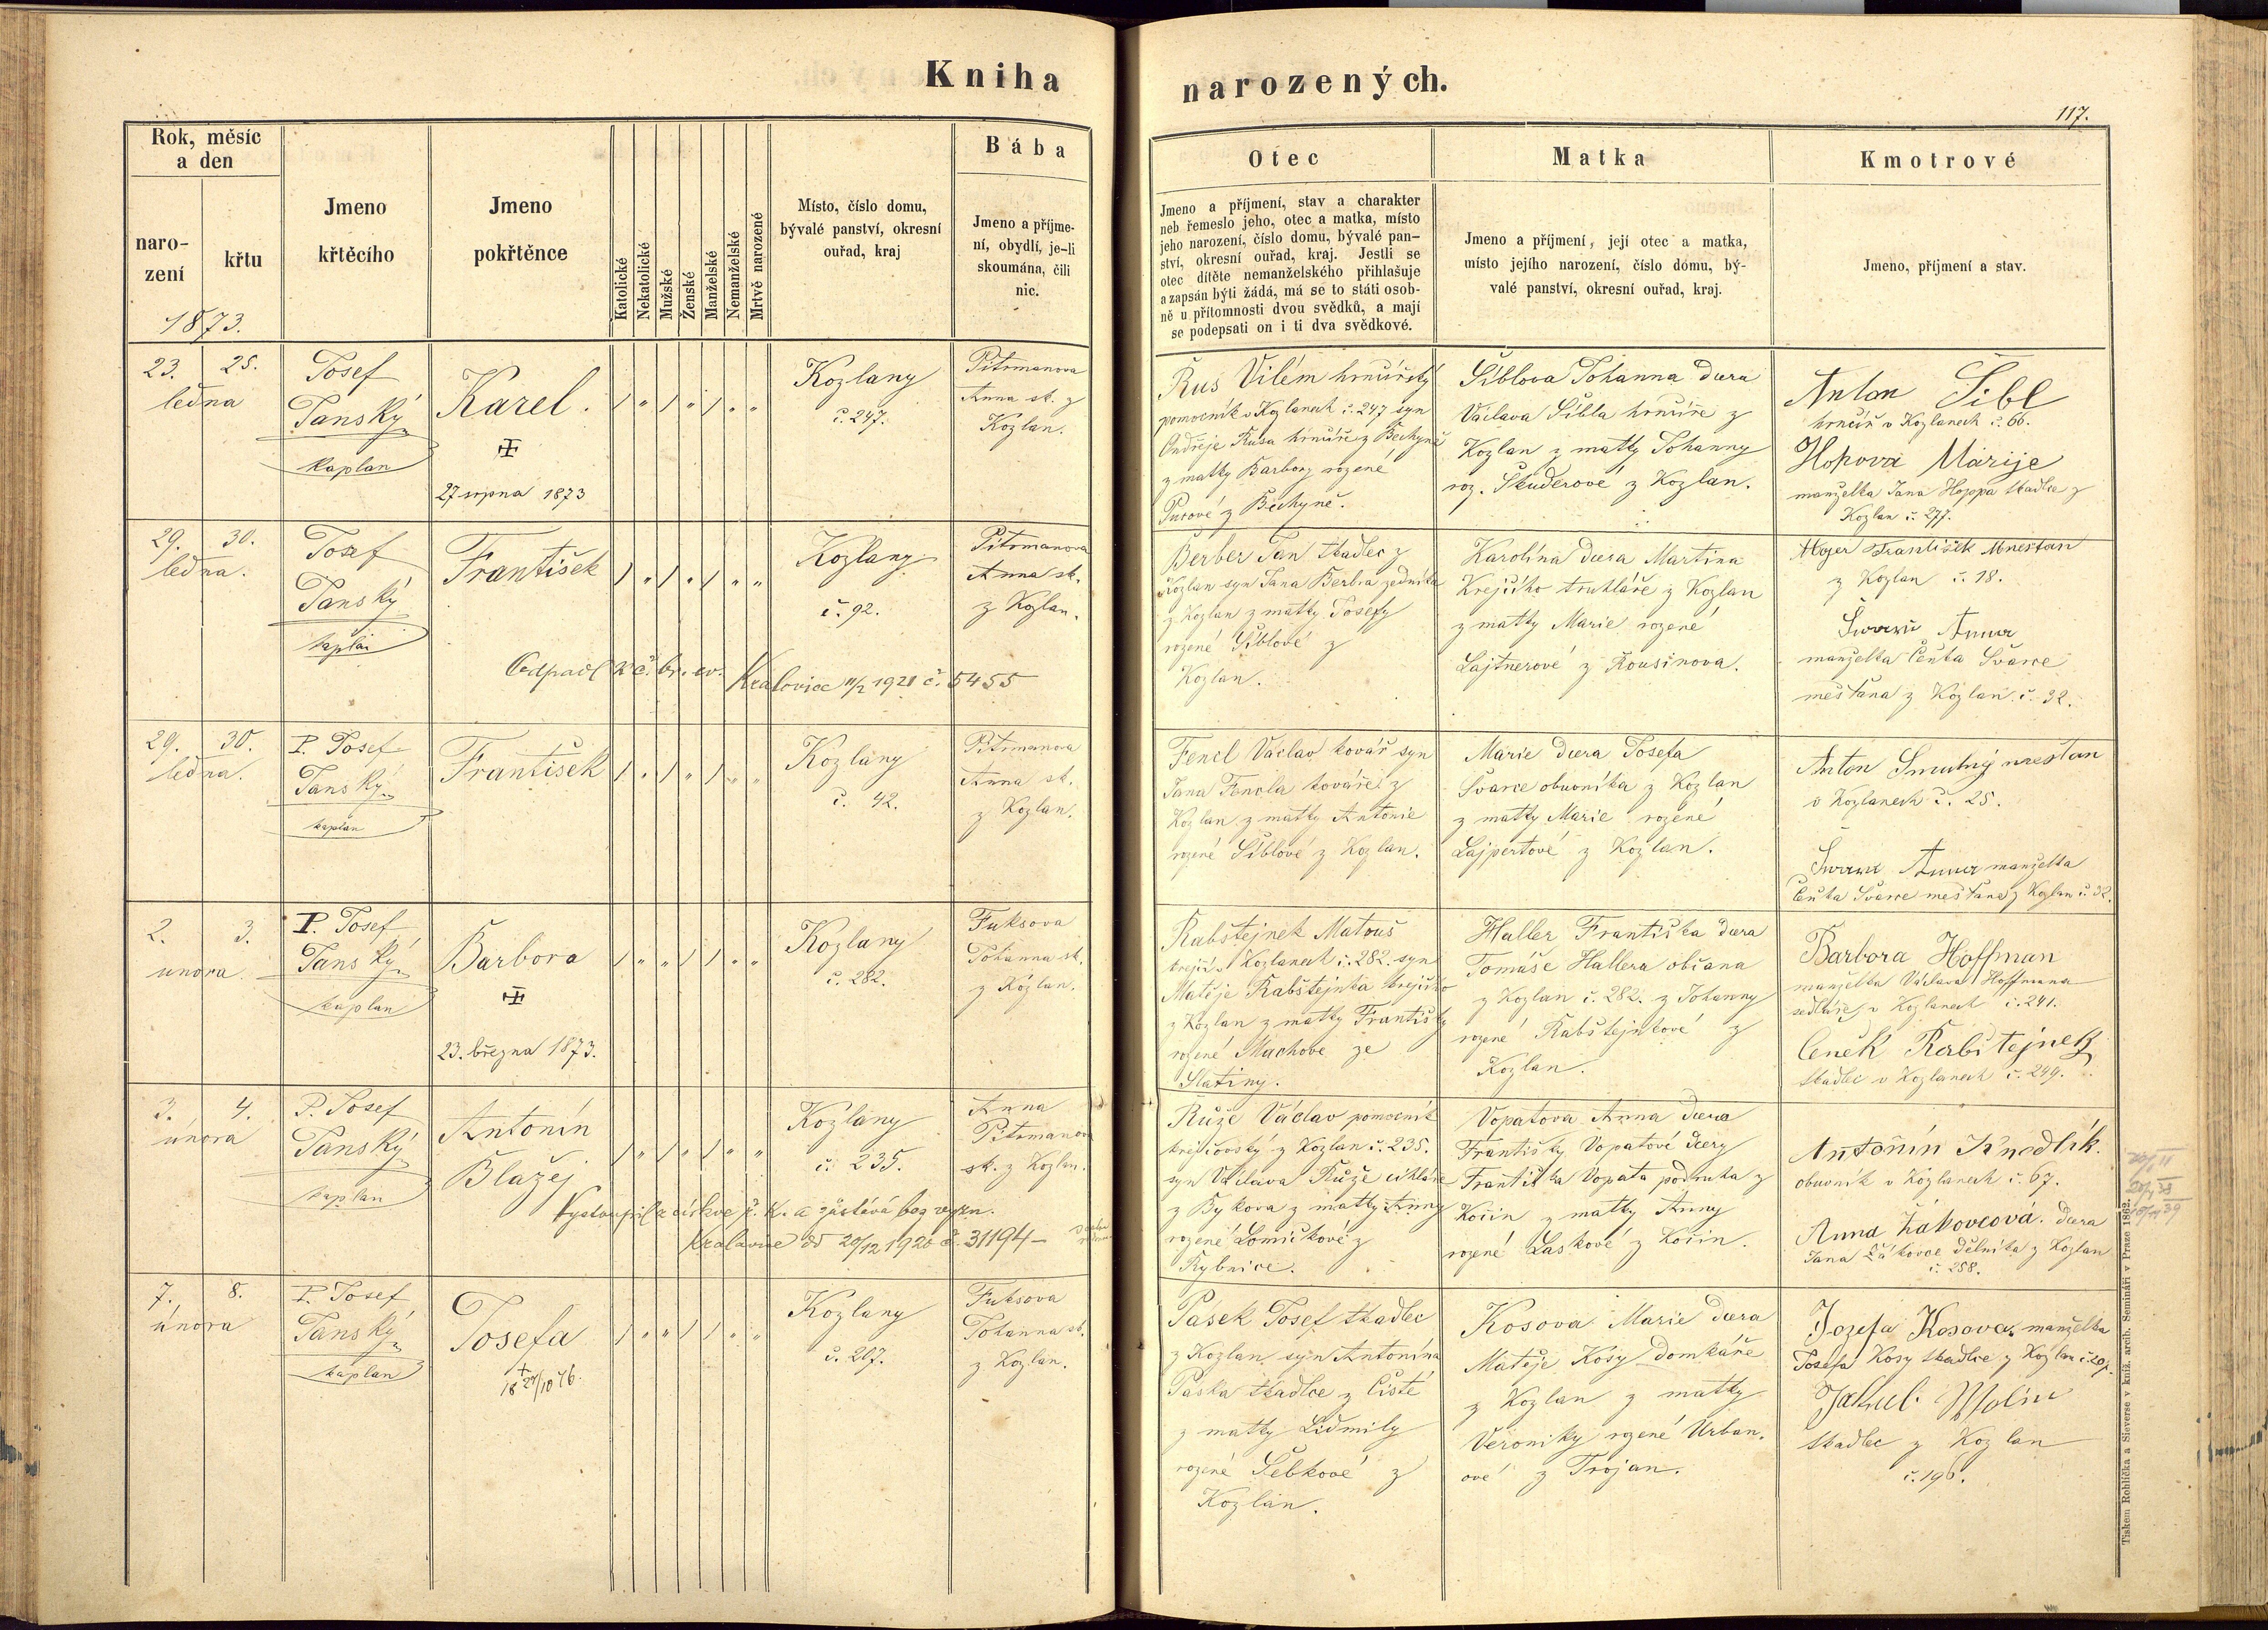 Kniha
narozených.
117.
Rok, měsíc
a den
naro-
zení
křtu
1873.
Jmeno
křtěcího
Jmeno
pokřtěnce
Katolické
Nekatolické
Mužské
Ženské
Manželské
Nemanželské
Mrtvě narozené
Místo, číslo domu,
bývalé panství, okresní
ouřad, kraj
Bába
Jmeno a příjme-
ní, obydlí, je-li
skoumána, čili
nic.
Otec
Jmeno a příjmení, stav a charakter
neb řemeslo jeho, otec a matka, místo
jeho narození, číslo domu, bývalé pan-
ství, okresní ouřad, kraj. Jestli se
otec dítěte nemanželského přihlašuje
a zapsán býti žádá, má se to státi osob-
ně u přítomnosti dvou svědků, a mají
se podepsati on i ti dva svědkové.
Matka
Jmeno a příjmení, její otec a matka,
místo jejího narození, číslo domu, bý-
valé panství, okresní ouřad, kraj.
Kmotrové
Jmeno, příjmení a stav.
23. 25.
ledna
Josef
Janský
kaplan
Karel.
27 srpna 1873
Kozlany
č. 247.
Pitrmanova
Anna sk. z
Kozlan.
Rus Vilém hrnčířský
pomocník v Kozlanech č. 247 syn
Ondřeje Rusa hrnčíře z Bechyně
z matky Barbory rozené
z Bechyně.
Šiblova Johanna dcera
Václava Šibla hrnčíře z
Kozlan z matky Johanny
roz. Škuderové z Kozlan.
Anton Šibl
hrnčíř v Kozlanech č. 66.
Hopova Marije
manželka Jana Hoppa tkadlce z
Kozlan č. 277.
29. 30.
ledna.
Josef
Janský
kaplan
František
Kozlany
č. 92.
Pitrmanova
Anna sk.
z Kozlan.
Odpadl k č. br. ev. Kralovice 11/2 1921 č. 5455
Berber Jan tkadlec z
Kozlan syn Jana Berbra zedníka
z Kozlan z matky Josefy
rozené Šiblové z
Kozlan.
Karolína dcera Martina
Krejčího truhláře z Kozlan
z matky Marie rozené
Lajtnerové z Rousinova.
Majer František Měšťan
z Kozlan č. 18.
Anna
manželka Čeňka Švarce
měšťana z Kozlan č. 32.
29. 30.
ledna.
P. Josef
Janský
kaplan
František
Kozlany
č. 42.
Pitrmanova
Anna sk.
z Kozlan.
Fencl Václav kovář syn
Jana Fencla kováře z
Kozlan z matky Antonie
rozené Šiblové z Kozlan.
Marie dcera Josefa
Švarce obuvníka z Kozlan
z matky Marie rozené
Lajpertové z Kozlan.
Anton Smutný mešťan
v Kozlanech č. 25.
Anna manželka
Čeňka Švarce mešťana z Kozlan č. 32.
2. 3.
února
P. Josef
Janský
kaplan
Barbora
23. března 1873.
Kozlany
č. 282.
Fuksova
Johanna sk.
z Kozlan.
Rabštejnek Matouš
krejčí v Kozlanech č. 282. syn
Matěje Rabštejnka krejčího
z Kozlan z matky Františky
rozené Machové ze
Slatiny.
Haller Františka dcera
Tomáše Hallera občana
z Kozlan č. 282. z Johanny
rozené Rabštejnkové z
Kozlan.
Barbora Hoffman
manželka Václava Hoffmana
sedláře v Kozlanech č. 241.
Čeněk Rabštejnek
tkadlec v Kozlanech č. 249.
3. 4.
února
P. Josef
Janský
kaplan
Antonín
Blažej
Kozlany
č. 235.
Anna
Pitrmanova
sk. z Kozlan.
Vystoupil z církve ř. k. a zůstává bez vyzn.
Kralovice dd 20/12 1920 č. 31194
Růže Václav pomocník
krejčovský z Kozlan č. 235.
syn Václava Růže cihláře
z Bykova z matky Anny
rozené Lomičkové z
Rybnice.
Vopatova Anna dcera
Františky Vopatové dcery
Františka Vopata podruha z
Kočín z matky Anny
rozené Laskové z Kočín.
Antonín Knedlík.
obuvník v Kozlanech č. 67.
Anna Žákovcová. dcera
Jana Žákovce dělníka z Kozlan
č. 258.
7. 8.
února
P. Josef
Janský
kaplan
Josefa
18 27/10 76.
Kozlany
č. 207.
Fuksova
Johanna sk.
z Kozlan.
Pasek Josef tkadlec
z Kozlan syn Antonína
Paska tkadlce z Čisté
z matky Lidmily
rozené Šebkové z
Kozlan.
Kosova Marie dcera
Matěje Kosy domkáře
z Kozlan z matky
Veroniky rozené Urban-
ové z Trojan.
Jozefa Kosova manželka
Josefa Kosy tkadlce z Kozlan č. 207.
Jakub Wolín
tkadlec z Kozlan
č. 196.
Tiskem Rohlíčka a Sieverse v kníž. arcib. Semináři v Praze 1862.